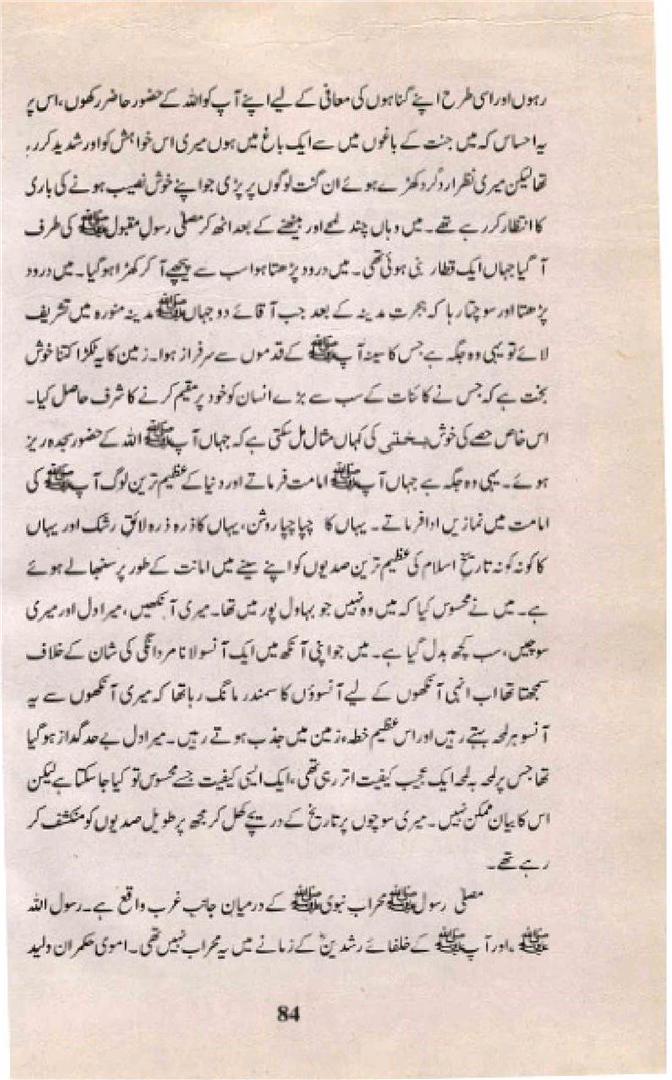 رہوں اور اسی طرح اپنے گناہوں کی معافی کے لیے اپنے آپ کو اللہ کے حضور حاضر رکھوں، اس پر
یہ احساس کہ میں جنت کے باغوں میں سے ایک باغ میں ہوں میری اس خواہش کو اور شدید کر رہ
تھا لیکن میری نظر ارد گرد کھڑے ہوئے ان گنت لوگوں پر پڑی جو اپنے خوش نصیب ہونے کی باری
کا انتظار کر رہے تھے۔ میں وہاں چند لمحے اور بیٹھنے کے بعد اٹھ کر مصلیٰ رسولِ مقبول ﷺ کی طرف
آ گیا جہاں ایک قطار بنی ہوئی تھی۔ میں درود پڑھتا ہوا سب سے پیچھے آ کر کھڑا ہو گیا۔ میں درود
پڑھتا اور سوچتا رہا کہ ہجرتِ مدینہ کے بعد جب آقائے دو جہاں ﷺ مدینہ منورہ میں تشریف
لائے تو یہی وہ جگہ ہے جس کا سینہ آپ ﷺ کے قدموں سے سرفراز ہوا۔ زمین کا یہ ٹکڑا کتنا خوش
بخت ہے کہ جس نے کائنات کے سب سے بڑے انسان کو خود پر مقیم کرنے کا شرف حاصل کیا۔
اس خاص حصے کی خوش بختی کی کہاں مثال مل سکتی ہے کہ جہاں آپ ﷺ اللہ کے حضور سجدہ ریز
ہوئے۔ یہی وہ جگہ ہے جہاں آپ ﷺ امامت فرماتے اور دنیا کے عظیم ترین لوگ آپ ﷺ کی
امامت میں نمازیں ادا فرماتے۔ یہاں کا چپا چپا روشن، یہاں کا ذرہ ذرہ لائقِ رشک اور یہاں
کا کونہ کونہ تاریخِ اسلام کی عظیم ترین صدیوں کو اپنے سینے میں امانت کے طور پر سنبھالے ہوئے
ہے۔ میں نے محسوس کیا کہ میں وہ نہیں جو بہاول پور میں تھا۔ میری آنکھیں، میرا دل اور میری
سوچیں، سب کچھ بدل گیا ہے۔ میں جو اپنی آنکھ میں ایک آنسو لانا مردانگی کی شان کے خلاف
سمجھتا تھا اب انہی آنکھوں کے لیے آنسوؤں کا سمندر مانگ رہا تھا کہ میری آنکھوں سے یہ
آنسو ہر لمحہ بہتے رہیں اور اس عظیم خطہءِ زمین میں جذب ہوتے رہیں۔ میرا دل بے حد گداز ہو گیا
تھا جس پر لمحہ بہ لمحہ ایک عجیب کیفیت اتر رہی تھی، ایک ایسی کیفیت جسے محسوس تو کیا جا سکتا ہے لیکن
اس کا بیان ممکن نہیں۔ میری سوچوں پر تاریخ کے دریچے کھل کر مجھ پر طویل صدیوں کو منکشف کر
رہے تھے۔
مصلیٰ رسول ﷺ محراب نبوی ﷺ کے درمیان جانب غرب واقع ہے۔ رسول اللہ
ﷺ، اور آپ ﷺ کے خلفائے رشدینؓ کے زمانے میں یہ محراب نہیں تھی۔ اموی حکمران ولید
84